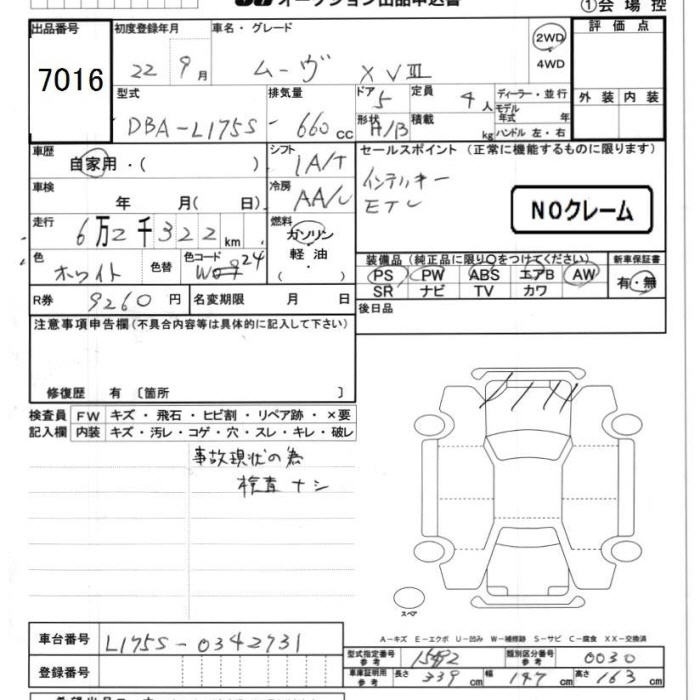 オークション出品申込書
①会場控
出品番号
7016
初度登録年月
22 9月
車名・グレード
ムーヴ X VⅢ
2WD
4WD
評価点
外装 内装
型式
DBA-L175S-
排気量
660 cc
ドア
5
形状
H/B
定員
4人
積載
kg
ディーラー・並行
モデル年式 年
ハンドル 左・右
車歴
自家用・( )
シフト
IA/T
セールスポイント (正常に機能するものに限ります)
インテリキー
ETC
NOクレーム
車検
年 月( 日)
冷房
AA/C
走行
6万2千322km
燃料
ガソリン
軽油
( ・ )
色
ホワイト
色替
色コード
W09
24
装備品 (純正品に限り○をつけてください)
PS PW ABS エアB AW
SR ナビ TV カワ
新車保証書
有・無
R券
9260円
名変期限 月 日
後日品
注意事項申告欄(不具合内容等は具体的に記入して下さい)
修復歴 有 〔箇所 〕
検査員記入欄
FW キズ・飛石・ヒビ割・リペア跡・×要
内装 キズ・汚レ・コゲ・穴・スレ・キレ・破レ
事故現状の為
検査ナシ
スペア
A-キズ E-エクボ U-凹み W-補修跡 S-サビ C-腐食 XX-交換済
車台番号
L175S-0342731
登録番号
型式指定番号
参考
類別区分番号
参考
0030
車庫証明用
参考
長さ 339cm
幅 147cm
高さ 163cm